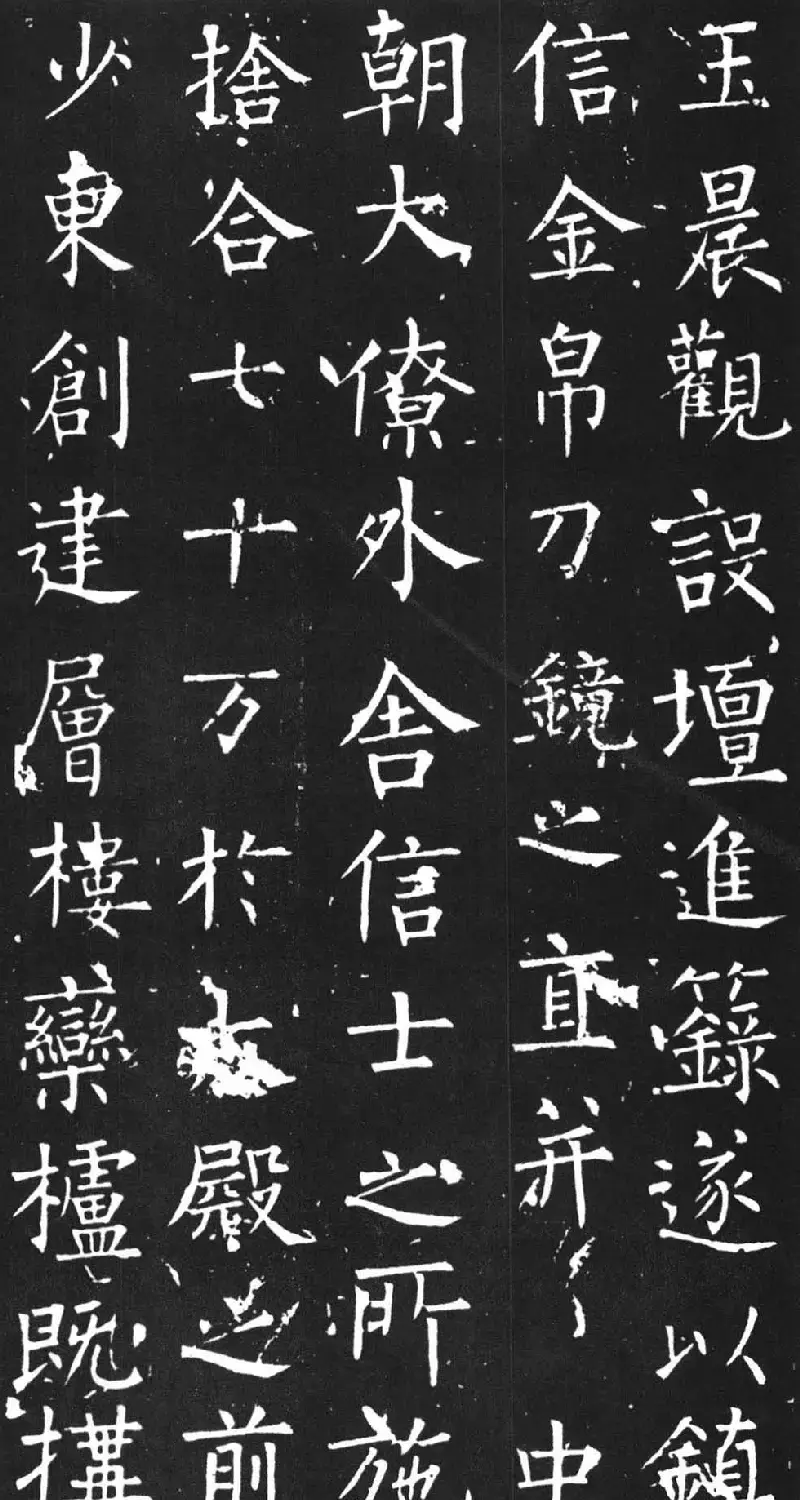 玉晨觀設壇進籙遂以鎮
信金帛刀鏡之直并 中
朝大僚外舍信士之所施
捨合七十万於 殿之前
少東創建層樓欒櫨既構